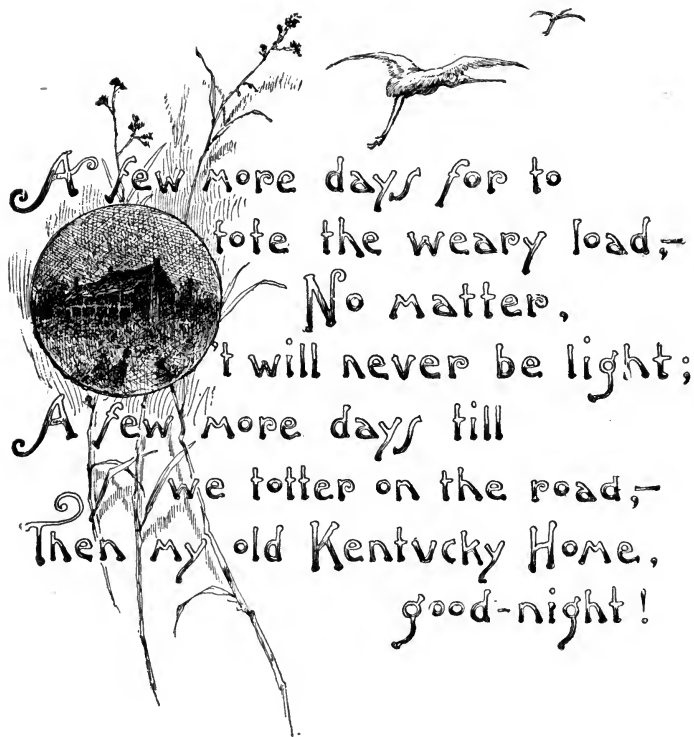 A few more days for to
tote the weary load,-
No matter,
't will never be light;
A few more days till
we totter on the road,-
Then my old Kentucky Home,
good-night!